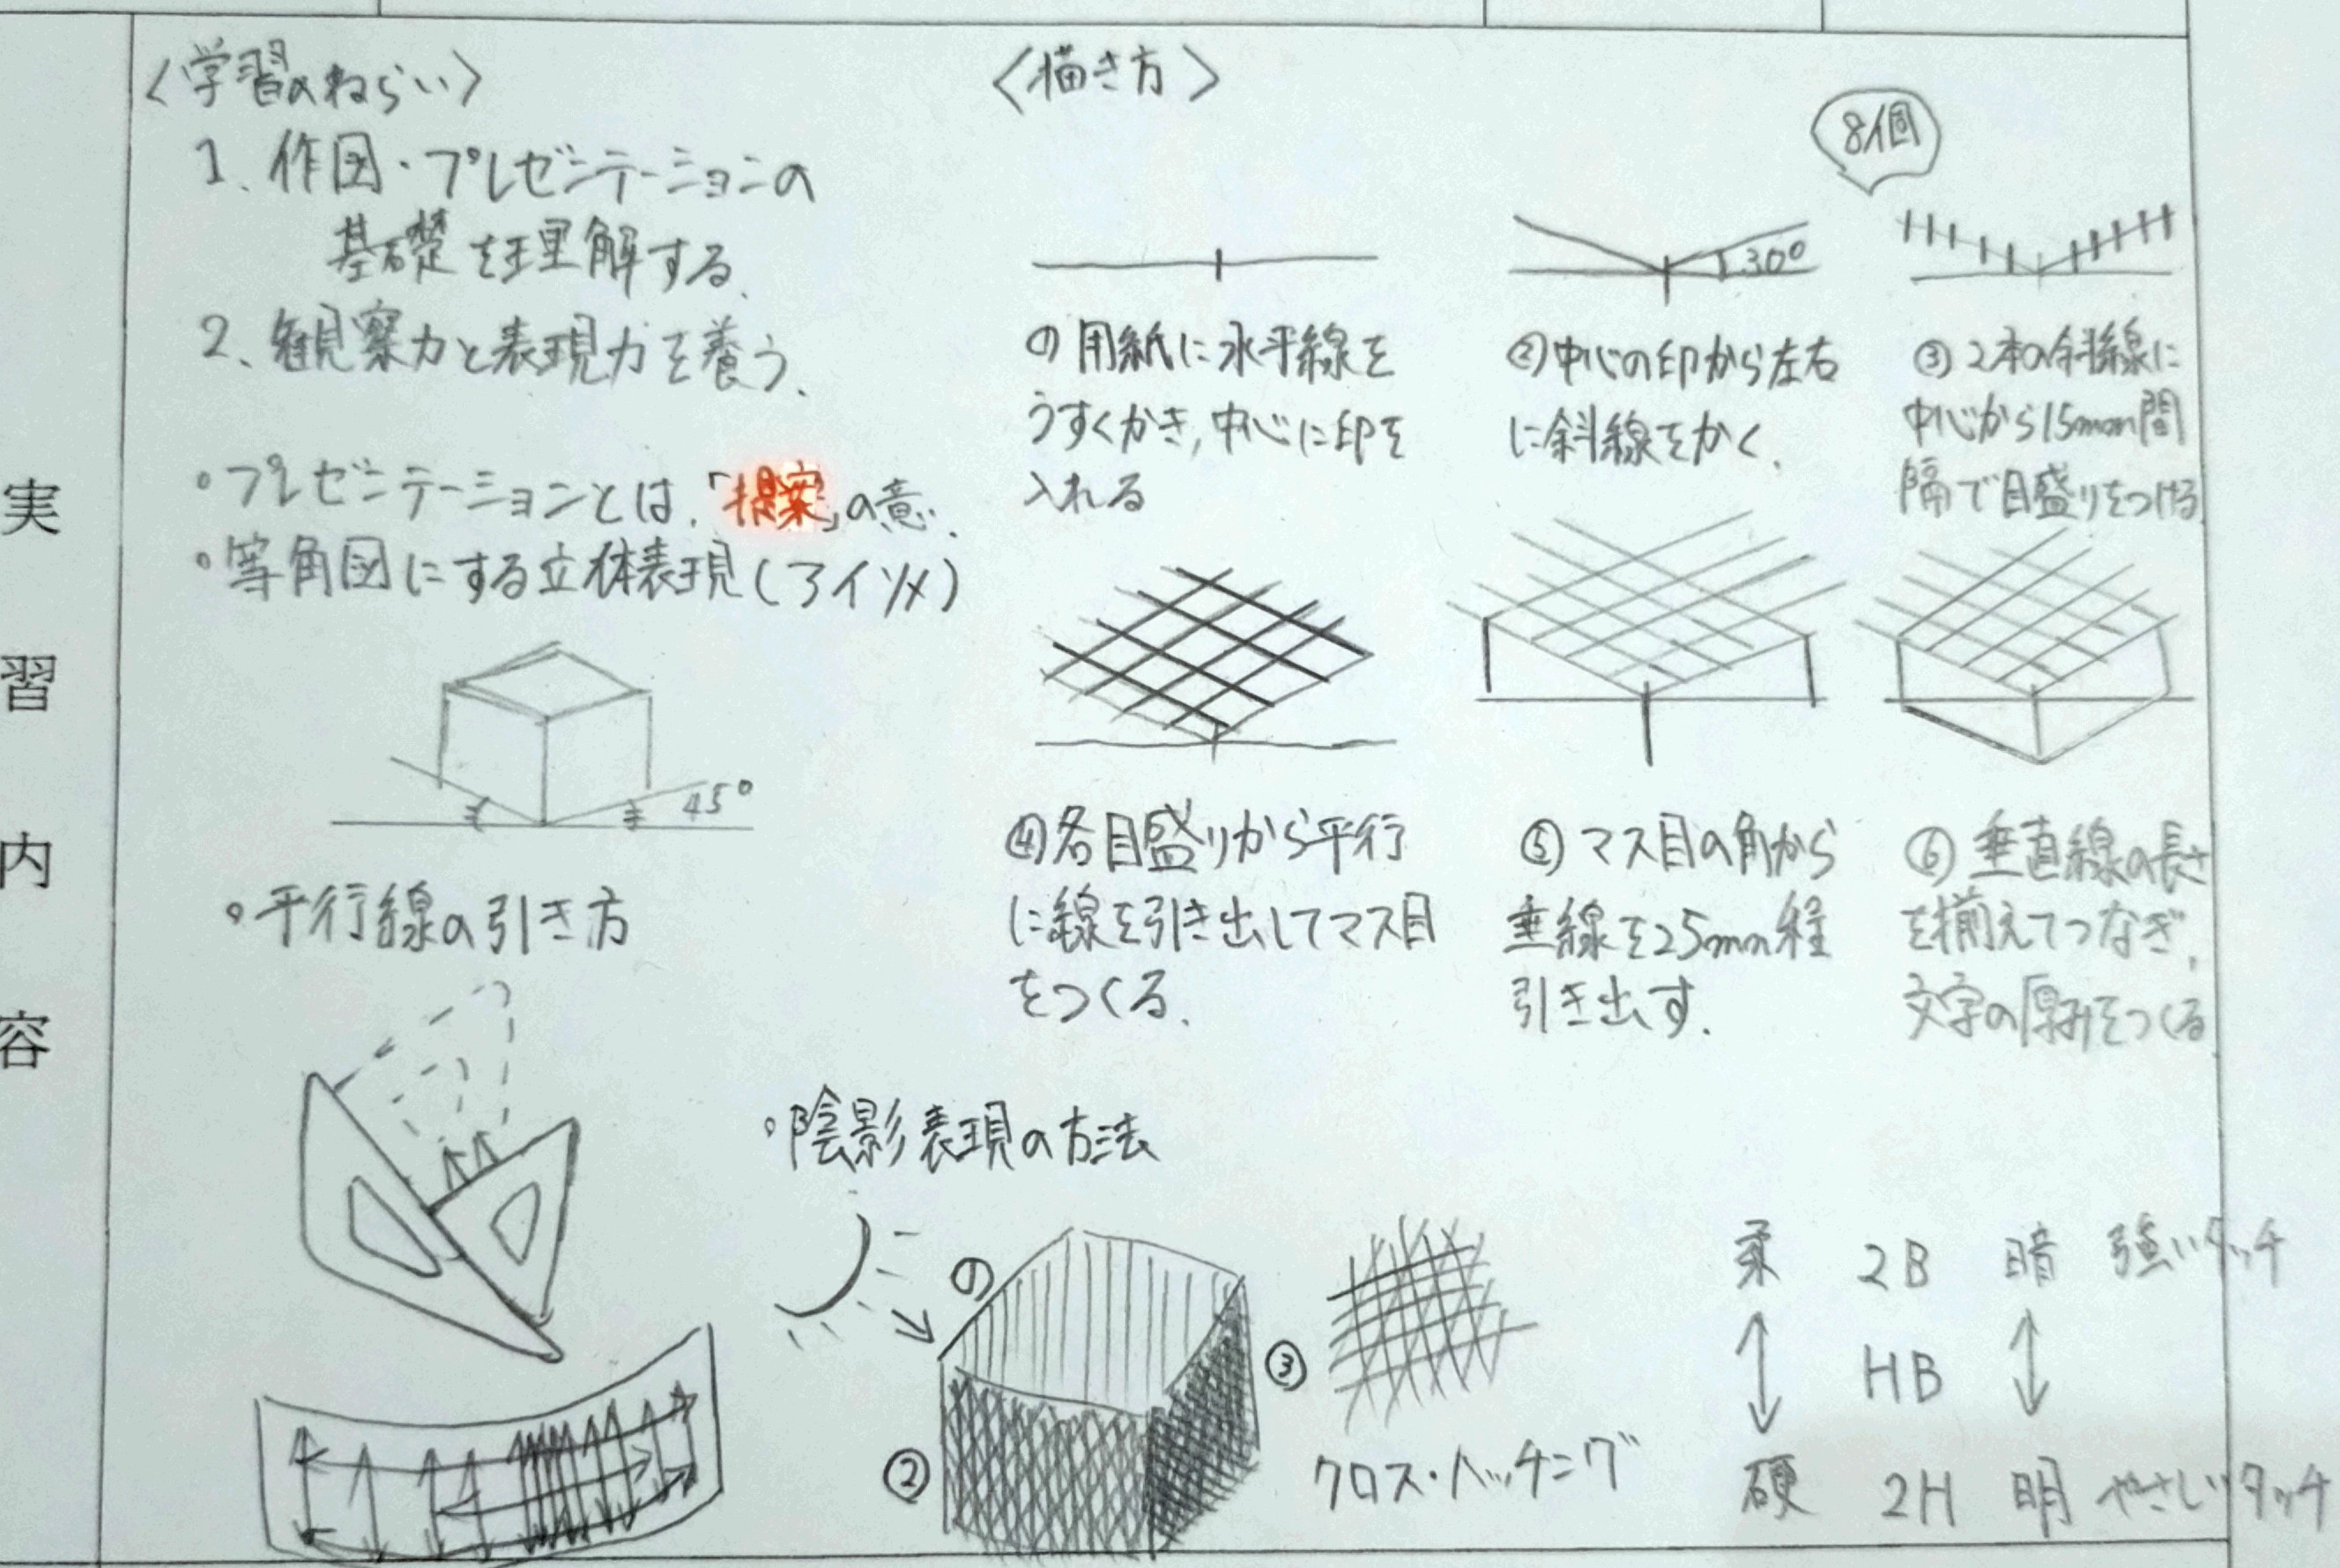 実習内容
〈学習のねらい〉
1. 作図・プレゼンテーションの
基礎を理解する.
2. 観察力と表現力を養う.
・プレゼンテーションとは,「提案」の意.
・等角図にする立体表現(アイソメ)
45°
・平行線の引き方
〈描き方〉
①用紙に水平線を
うすくかき,中心に印を
入れる
30°
②中心の印から左右
に斜線をかく.
8個
③2本の斜線に
中心から15mm間
隔で目盛りをつける.
④各目盛りから平行
に線を引き出してマス目
をつくる.
⑤マス目の角から
垂線を25mm程
引き出す.
⑥垂直線の長さ
を揃えてつなぎ,
文字の厚みをつくる
・陰影表現の方法
①
②
③
クロス・ハッチング
柔 2B 暗 強いタッチ
HB
硬 2H 明 やさしいタッチ